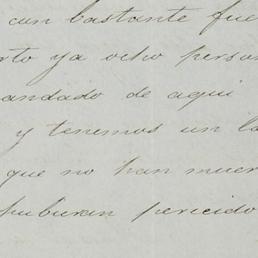 con bastante fue
rto ya ocho person
andado de aqui
y tenemos un la
que no han muer
hubieran perecido